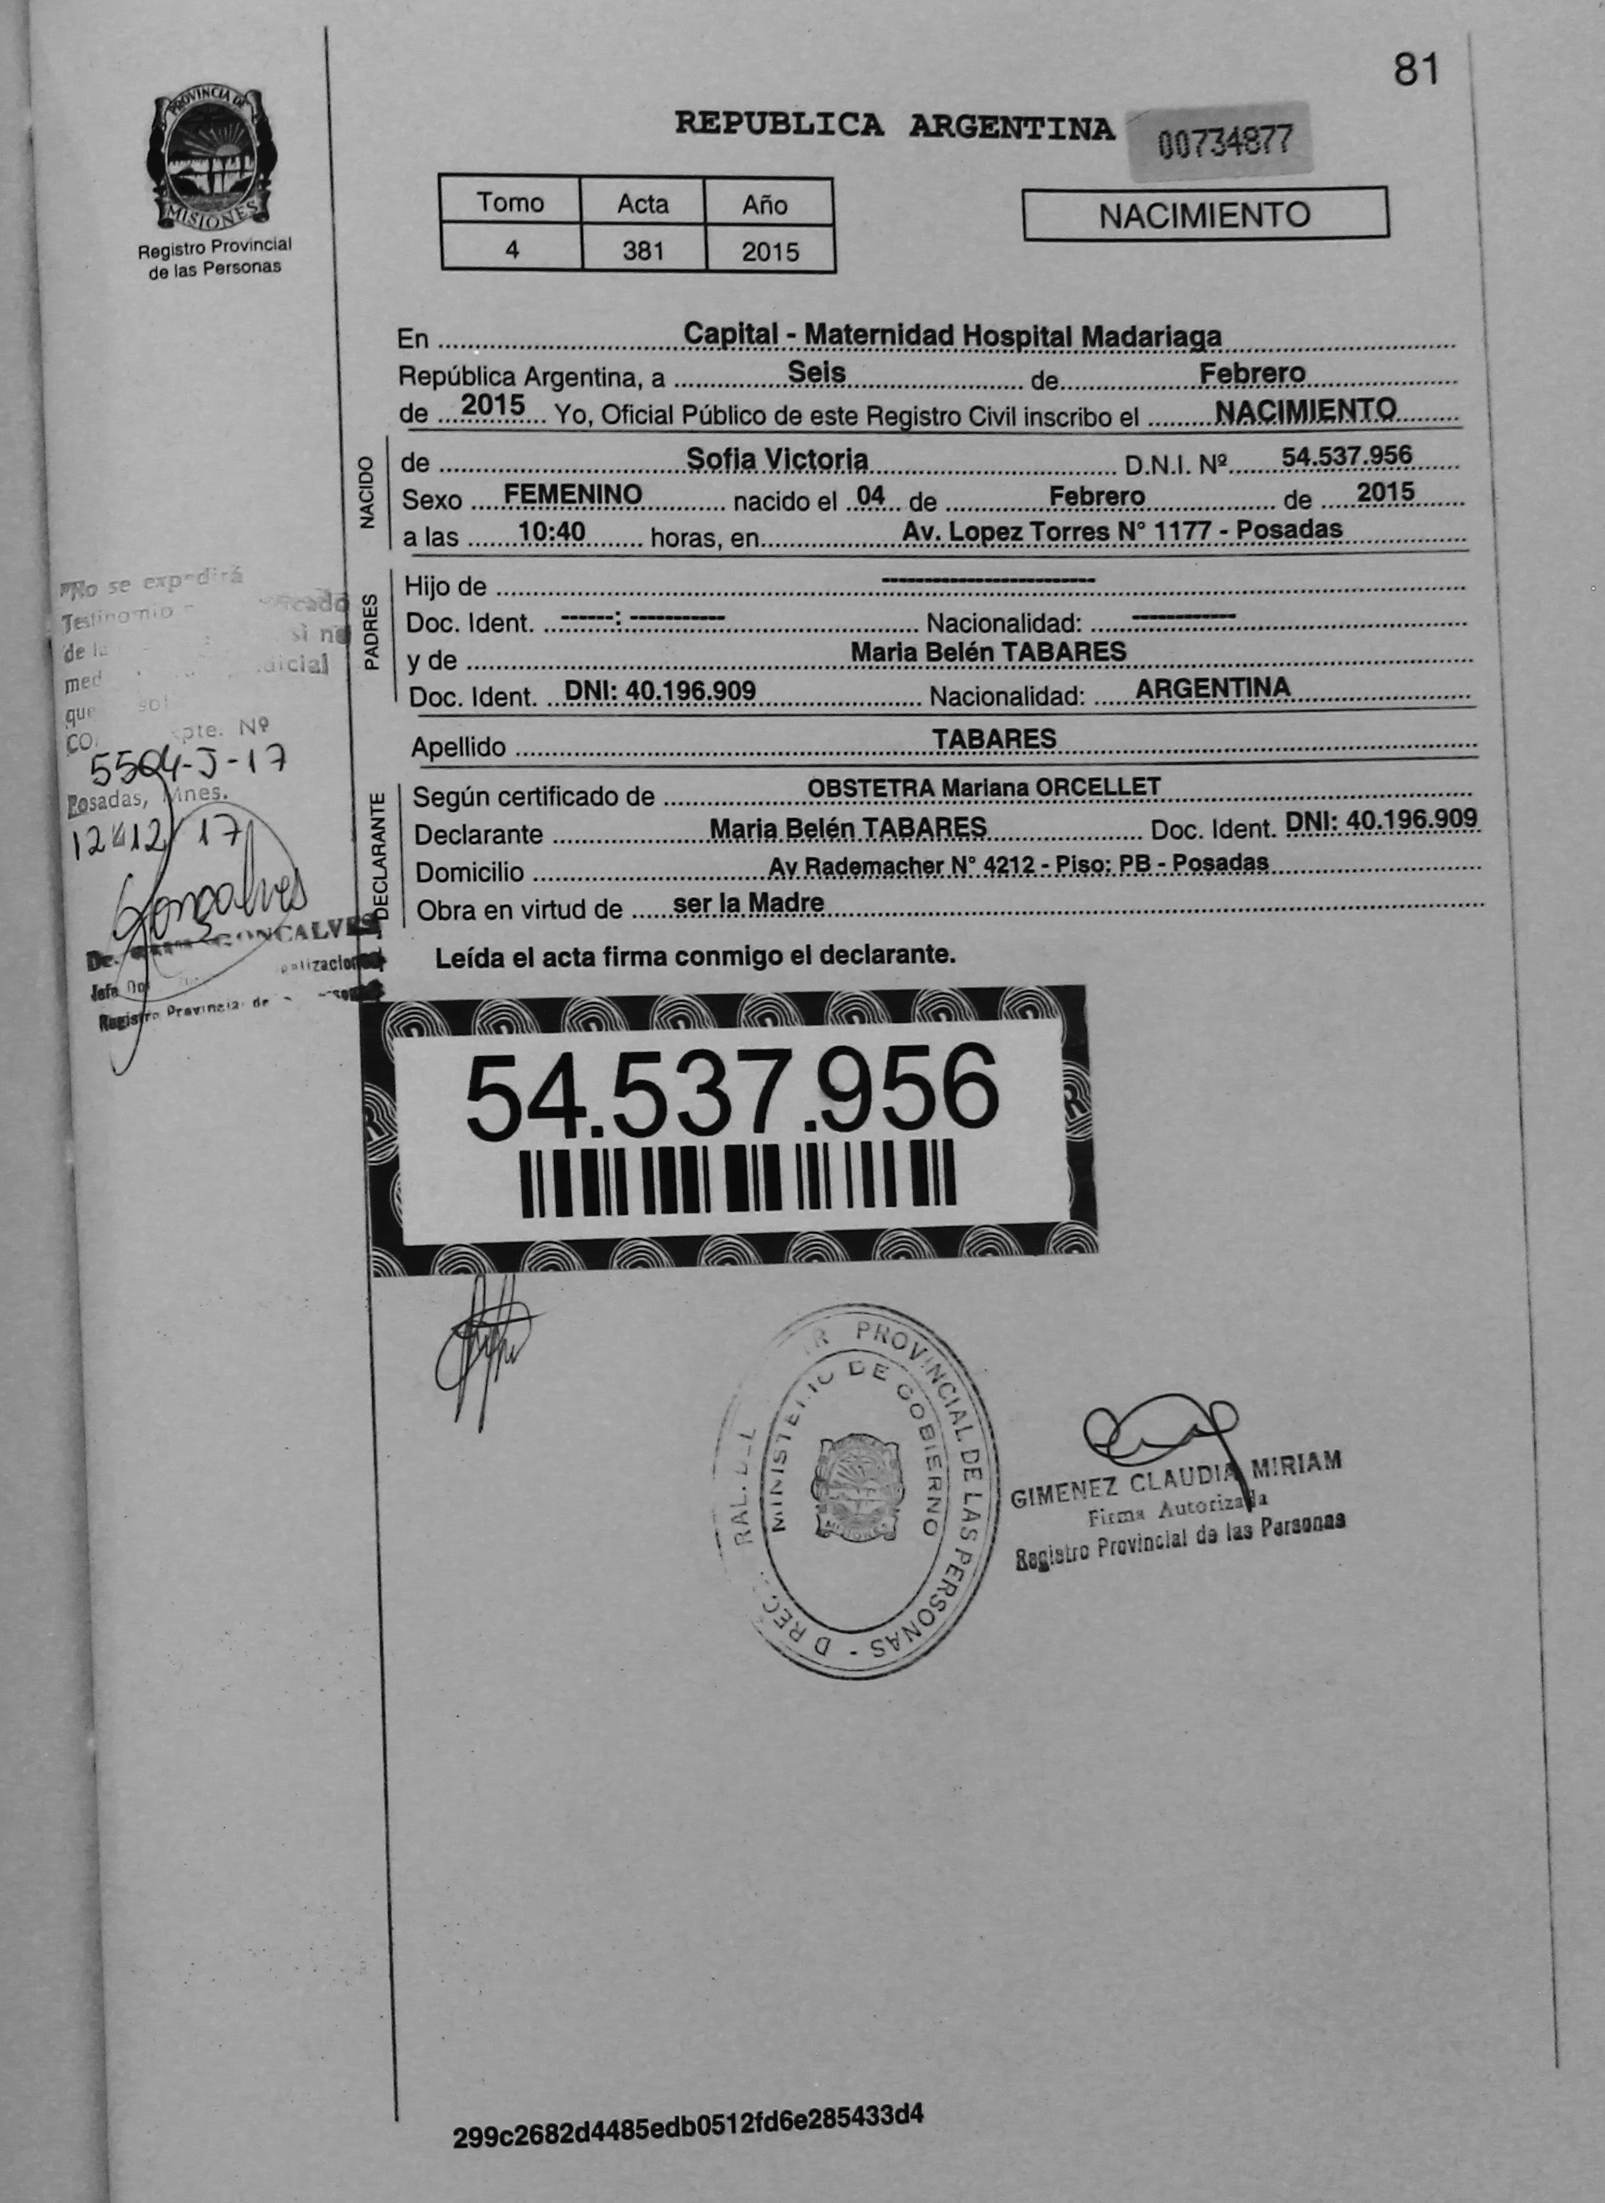 81
PROVINCIA DE
MISIONES
Registro Provincial
de las Personas
REPUBLICA ARGENTINA
00734877
Tomo Acta Año
4 381 2015
NACIMIENTO
En Capital - Maternidad Hospital Madariaga
República Argentina, a Seis de Febrero
de 2015 Yo, Oficial Público de este Registro Civil inscribo el NACIMIENTO
NACIDO
de Sofia Victoria D.N.I. Nº 54.537.956
Sexo FEMENINO nacido el 04 de Febrero de 2015
a las 10:40 horas, en Av. Lopez Torres N° 1177 - Posadas
PADRES
Hijo de -----------------------
Doc. Ident. ------: ----------- Nacionalidad: ------------
y de Maria Belén TABARES
Doc. Ident. DNI: 40.196.909 Nacionalidad: ARGENTINA
Apellido TABARES
DECLARANTE
Según certificado de OBSTETRA Mariana ORCELLET
Declarante Maria Belén TABARES Doc. Ident. DNI: 40.196.909
Domicilio Av Rademacher N° 4212 - Piso: PB - Posadas
Obra en virtud de ser la Madre
Leída el acta firma conmigo el declarante.
"No se expedirá
Testimonio
de la si no
que
Nº
5504-J-17
Posadas, Mnes.
12 12 17
Gonçalves
GONCALVES
Jefa
Registro Provincial de
54.537.956
PROVINCIAL DE LAS PERSONAS
MINISTERIO DE GOBIERNO
MISIONES
GIMENEZ CLAUDIA MIRIAM
Firma Autorizada
Registro Provincial de las Personas
299c2682d4485edb0512fd6e285433d4